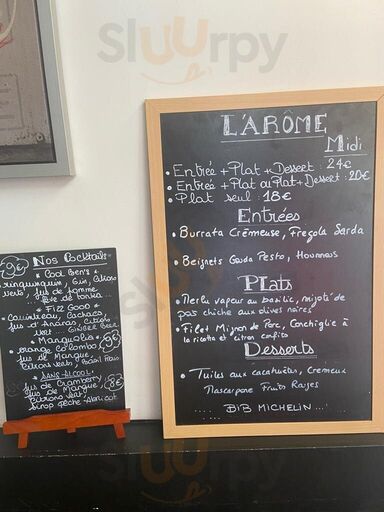 Sluurpy
L'ARÔME
Midi
• Entrée + Plat + Dessert : 24€
• Entrée + Plat ou Plat + Dessert : 20€
• Plat seul : 18€
Entrées
• Burrata Crémeuse, Fregola Sarda
• Beignets Gouda Pesto, Houmous
Plats
• Merlu vapeur au basilic, mijoté de
pois chiche aux olives noires
• Filet Mignon de Porc, Conchiglie à
la ricotta et citron confits
Desserts
• Tuiles aux cacahuètes, Cremeux
Mascarpone Fruits Rouges
BIB MICHELIN ...!
9€
Nos Cocktails
* Cool Ben's *
Gin, Citron
verts, jus de pomme
... fève de tonka ...
* Fizz Good *
Cachaca
Jus d'Ananas, Citron
vert ... Ginger Beer
* Manguolia *
Mango Colombo,
Jus de Mangue,
Citrons verts, Basil
SANS ALCOOL:
Jus de Cranberry
Jus de Mangue,
Citrons vert,
Sirop pêche - Abricot
8€
Sluurpy